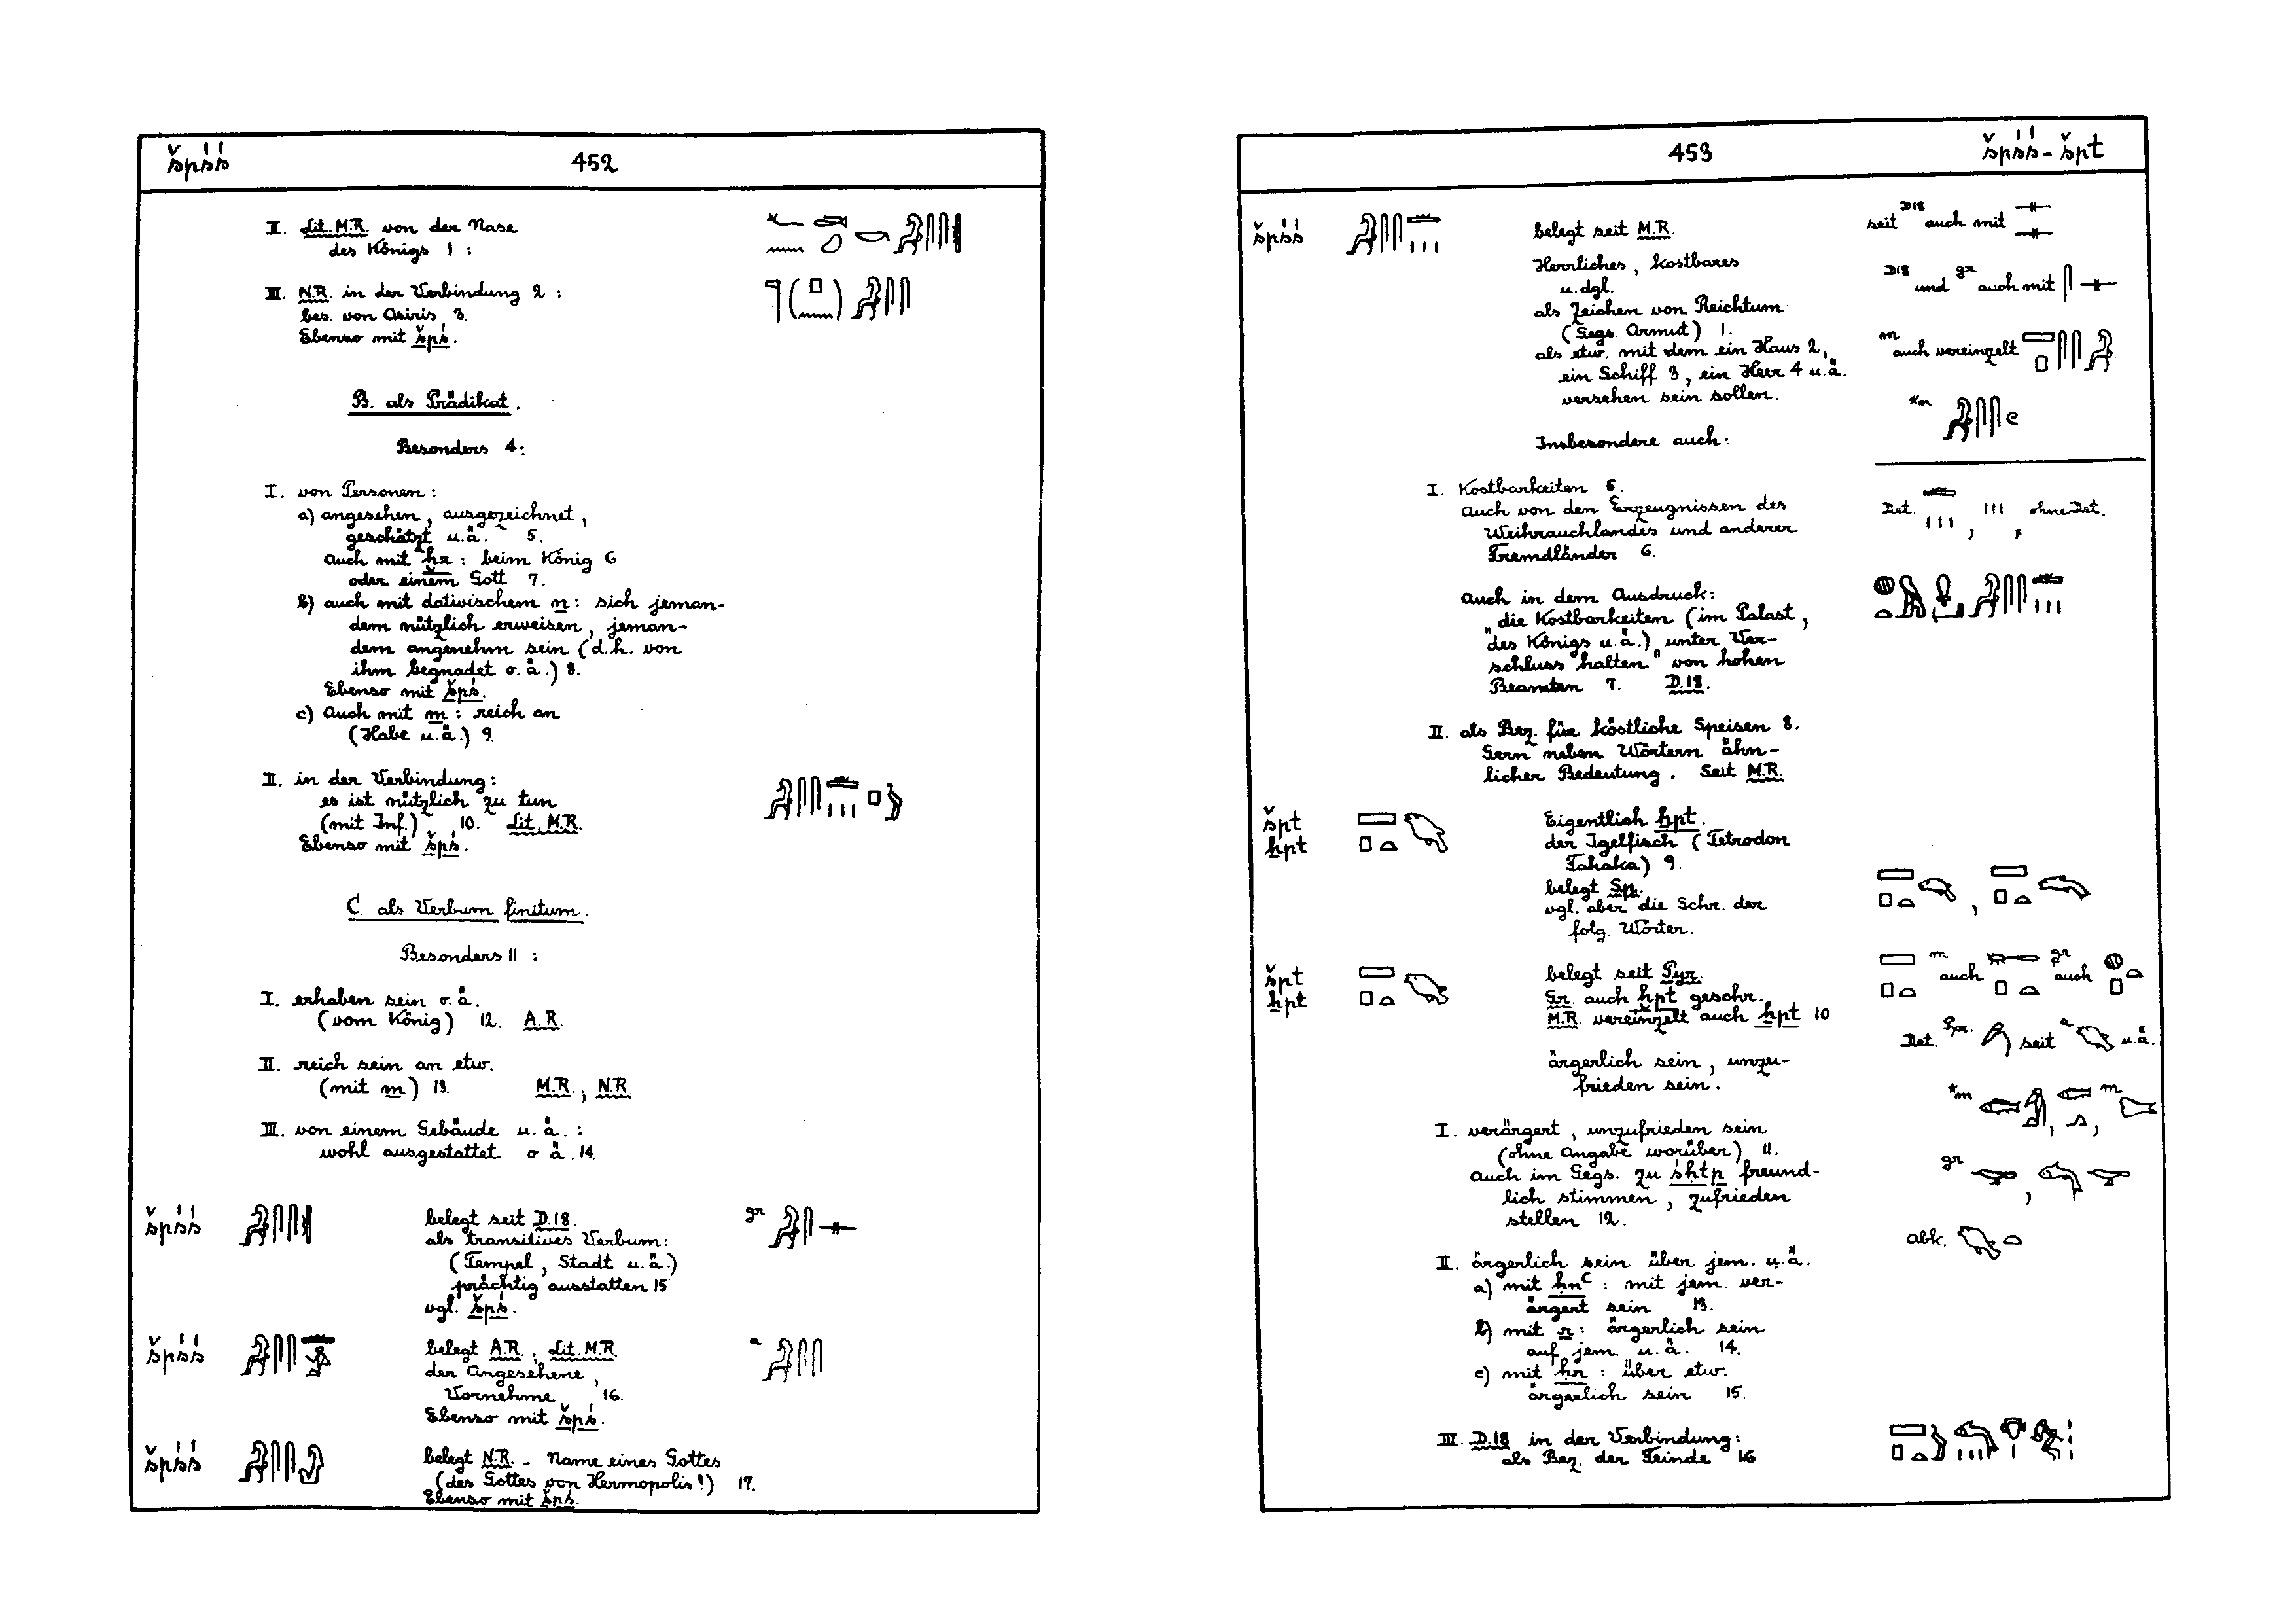 špśś
452
II. Lit. M.R. von der Nase
des Königs 1 :
III. N.R. in der Verbindung 2 :
bes. von Osiris 3.
Ebenso mit špś.
B. als Prädikat.
Besonders 4:
I. von Personen:
a) angesehen, ausgezeichnet,
geschätzt u.ä. 5.
auch mit ḫr : beim König 6
oder einem Gott 7.
b) auch mit dativischem n: sich jeman-
dem nützlich erweisen, jeman-
dem angenehm sein (d.h. von
ihm begnadet o.ä.) 8.
Ebenso mit špś.
c) Auch mit m : reich an
(Habe u.ä.) 9.
II. in der Verbindung:
es ist nützlich zu tun
(mit Inf.) 10. Lit. M.R.
Ebenso mit špś.
C. als Verbum finitum.
Besonders 11 :
I. erhaben sein o.ä.
(vom König) 12. A.R.
II. reich sein an etw.
(mit m) 13. M.R., N.R.
III. von einem Gebäude u.ä. :
wohl ausgestattet o.ä. 14.
špśś belegt seit D.18. gr
als transitives Verbum:
(Tempel, Stadt u.ä.)
prächtig ausstatten 15
vgl. špś.
špśś belegt A.R., Lit. M.R. a
der Angesehene,
Vornehme 16.
Ebenso mit špś.
špśś belegt N.R. - Name eines Gottes
(des Gottes von Hermopolis?) 17.
Ebenso mit špś.
453
špśś - špt
špśś belegt seit M.R.
Herrliches, Kostbares
u. dgl.
als Zeichen von Reichtum
(Gegs. Armut) 1.
als etw. mit dem ein Haus 2,
ein Schiff 3, ein Heer 4 u.ä.
versehen sein sollen.
Insbesondere auch:
seit D18 auch mit
D18 und gr auch mit
m auch vereinzelt
Det. , , ohne Det.
I. Kostbarkeiten 5.
Auch von den Erzeugnissen des
Weihrauchlandes und anderer
Fremdländer 6.
Auch in dem Ausdruck:
"die Kostbarkeiten (im Palast,
des Königs u.ä.) unter Ver-
schluss halten" von hohen
Beamten 7. D.18.
II. als Bez. für köstliche Speisen 8.
Gern neben Wörtern ähn-
licher Bedeutung. Seit M.R.
špt Eigentlich ẖpt.
ẖpt der Igelfisch (Tetrodon
Fahaka) 9.
belegt Sp.
vgl. aber die Schr. der
folg. Wörter.
špt belegt seit Pyr.
ẖpt Gr. auch ḫpt geschr.
M.R. vereinzelt auch ẖpt 10
ärgerlich sein, unzu-
frieden sein.
m auch gr auch
Det. Pyr. seit a u.ä.
*m , , m
gr ,
abk.
I. verärgert, unzufrieden sein
(ohne Angabe worüber) 11.
auch im Gegs. zu śḥtp freund-
lich stimmen, zufrieden
stellen 12.
II. ärgerlich sein über jem. u.ä.
a) mit ḥnꜥ : mit jem. ver-
ärgert sein 13.
b) mit r : ärgerlich sein
auf jem. u.ä. 14.
c) mit ḥr : über etw.
ärgerlich sein 15.
III. D.18 in der Verbindung:
als Bez. der Feinde 16